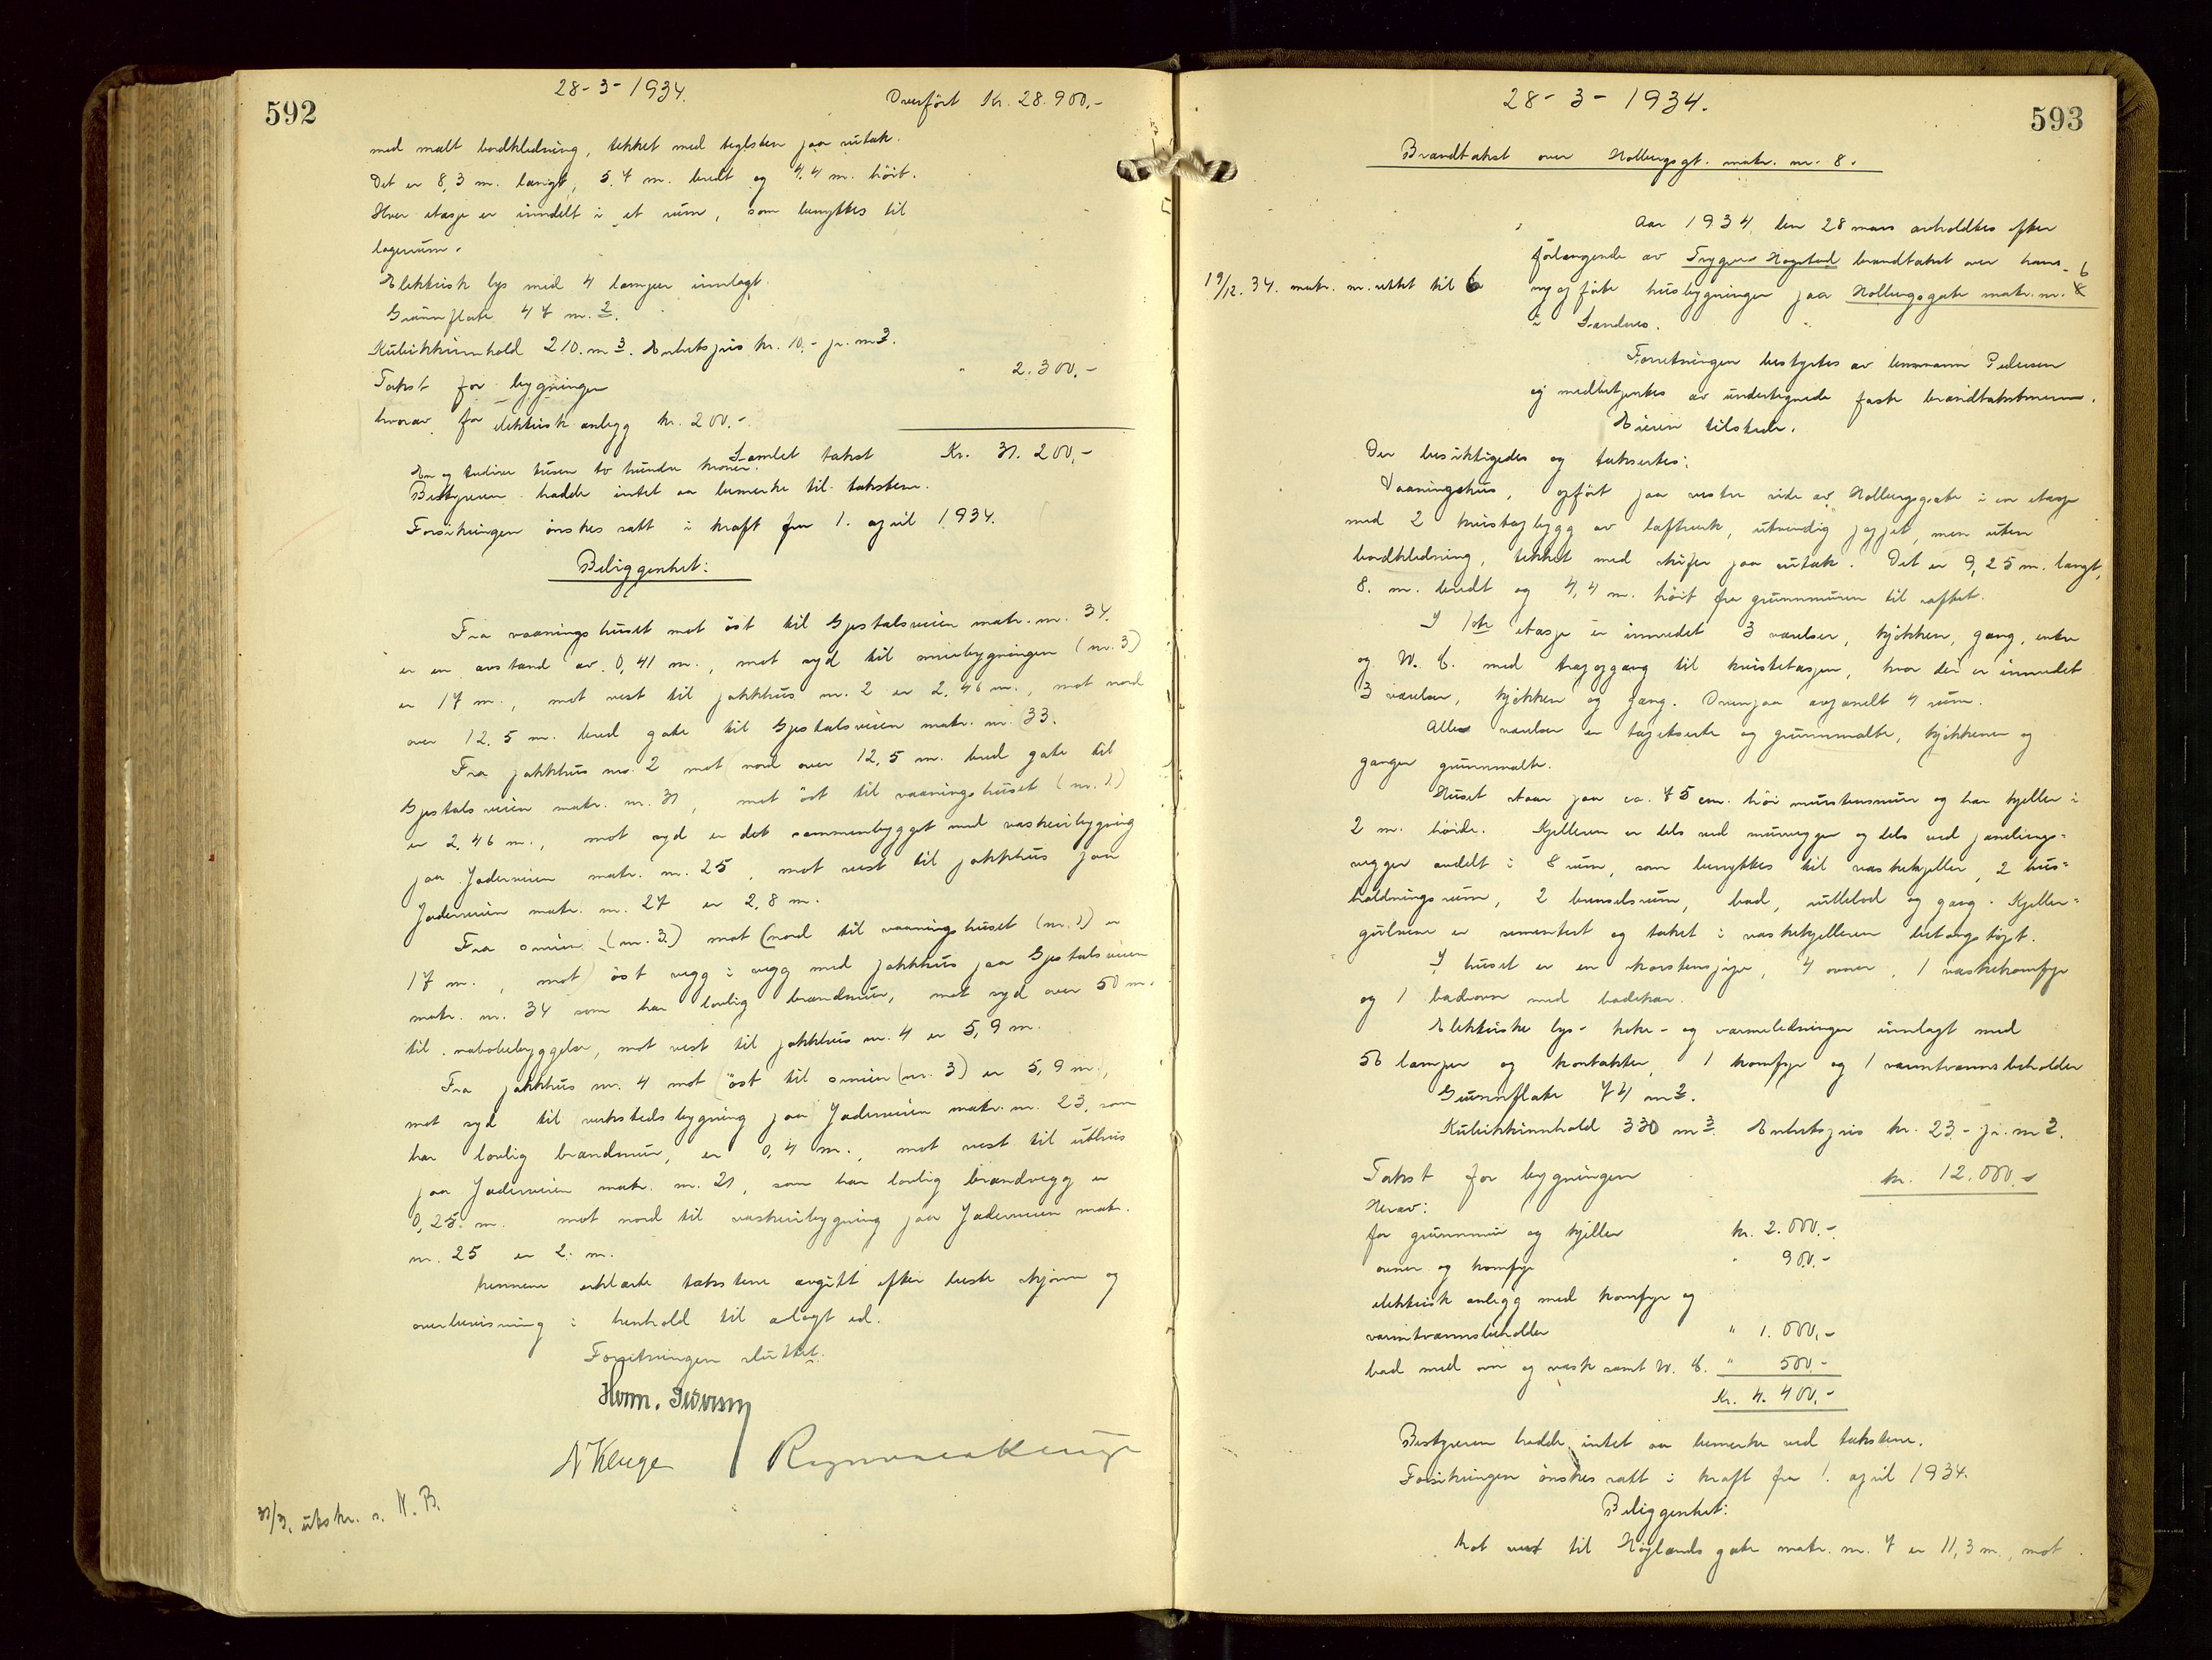 592
28-3-1934.
Overført Kr. 28.900.-
med malt bordkledning, tekket med teglsten paa rutak.
Det er 8,3 m. langt, 5.7 m. bredt og 4.4 m. høit.
Hver etasje er inndelt i et rum, som benyttes til
lagerrum.
Elektrisk lys med 4 lamper innlagt.
Grunnflate 47 m.2.
Kubikkinnhold 210. m3. Enhetspris kr. 10.- pr. m3.
Takst for bygningen " 2.300.-
hvorav for elektrisk anlegg kr. 200.-
Samlet takst Kr. 31.200,-
En og tredive tusen to hundre kroner.
Bestyreren hadde intet aa bemerke til taksten.
Forsikringen ønskes satt i kraft fra 1. april 1934.
Beliggenhet:
Fra vaaningshuset mot øst til Gjestalsveien matr. nr. 34.
er en avstand av 0,41 m., mot syd til smiebygningen (nr. 3)
er 17 m., mot vest til pakkhus nr. 2 er 2.46 m., mot nord
over 12.5 m. bred gate til Gjestalsveien matr. nr. 33.
Fra pakkhus nr. 2 mot nord over 12,5 m. bred gate til
Gjestalsveien matr. nr. 31, mot øst til vaaningshuset (nr. 1)
er 2.46 m., mot syd er det sammenbygget med vaskeribygning
paa Jaderveien matr. nr. 25, mot vest til pakkhus paa
Jaderveien matr. nr. 27 er 2,8 m.
Fra smien (nr. 3.) mot (nord til vaaningshuset (nr. 1) er
17 m., mot øst vegg i vegg med pakkhus paa Gjestalsveien
matr. nr. 34 som har lovlig brandmur, mot syd over 50 m.
til nabobebyggelse, mot vest til pakkhus nr. 4 er 5,9 m.
Fra pakkhus nr. 4 mot øst til smien (nr. 3) er 5,9 m.,
mot syd til verkstedsbygning paa Jaderveien matr. nr. 23, som
har lovlig brandmur, er 0,4 m., mot vest til uthus
paa Jaderveien matr. nr. 21, som har lovlig brandvegg er
0,25. m. mot nord til vaskeribygning paa Jaderveien matr.
nr. 25 er 2. m.
Mennene erklærte takstene avgitt efter beste skjønn og
overbevisning i henhold til avlagt ed.
Forretningen sluttet.
Herm. Pedersen
N Kluge
31/3. utskr. s. N. B.
593
28-3-1934.
Brandtakst over Holbergsgt. matr. nr. 8.
Aar 1934, den 28 mars avholdtes efter
forlangende av Trygve Hogstad brandtakst over hans 6
19/12.34. matr. nr. rettet til 6
nyopførte husbygninger paa Holbergsgate matr. nr. 8
i Sandnes.
Forretningen bestyrtes av lensmann Pedersen
og medbetjentes av undertegnede faste brandtakstmenn.
Eieren tilstede.
Der besiktigedes og taksertes:
Vaaningshus, opført paa vestre side av Holbergsgate i en etasje
med 2 kvistopbygg av lafteverk, utvendig pappet, men uten
bordkledning, tekket med skifer paa rutak. Det er 9,25 m. langt,
8. m. bredt og 4,4 m. høit fra grunnmuren til raftet.
I 1ste etasje er innredet 3 værelser, kjøkken, gang, entre
og W. C. med trapopgang til kvistetasjen, hvor der er innredet
3 værelser, kjøkken og gang. Ovenpaa avpanelt 4 rum.
Alle værelser er tapetserte og grunnmalte, kjøkkener og
ganger grunnmalte.
Huset staar paa ca. 75 cm. høi murstensmur og har kjeller i
2 m. høide. Kjelleren er dels ved murvegger og dels ved panelings=
vegger avdelt i 8 rum, som benyttes til vaskekjeller, 2 hus=
holdningsrum, 2 brenselsrum, bad, rullebod og gang. Kjeller=
gulvene er sementert og taket i vaskekjelleren betongstøpt.
I huset er en skorstenspipe, 4 ovner, 1 vaskekomfyr
og 1 badeovn med badekar.
Elektriske lys- koke- og varmeledninger innlagt med
56 lamper og kontakter, 1 komfyr og 1 varmtvannsbeholder
Grunnflate 74 m2.
Kubikkinnhold 330 m3. Enhetspris kr. 23.- pr. m3.
Takst for bygningen kr. 12.000.-
Herav:
for grunnmur og kjeller kr. 2.000.-
ovner og komfyr " 900.-
elektrisk anlegg med komfyr og
varmtvannsbeholder " 1.000.-
bad med ovn og vask samt W. C. " 500.-
Kr. 4.400.-
Bestyreren hadde intet aa bemerke ved takstene.
Forsikringen ønskes satt i kraft fra 1. april 1934.
Beliggenhet:
Mot vest til Høylandsgate matr. nr. 7 er 11,3 m., mot